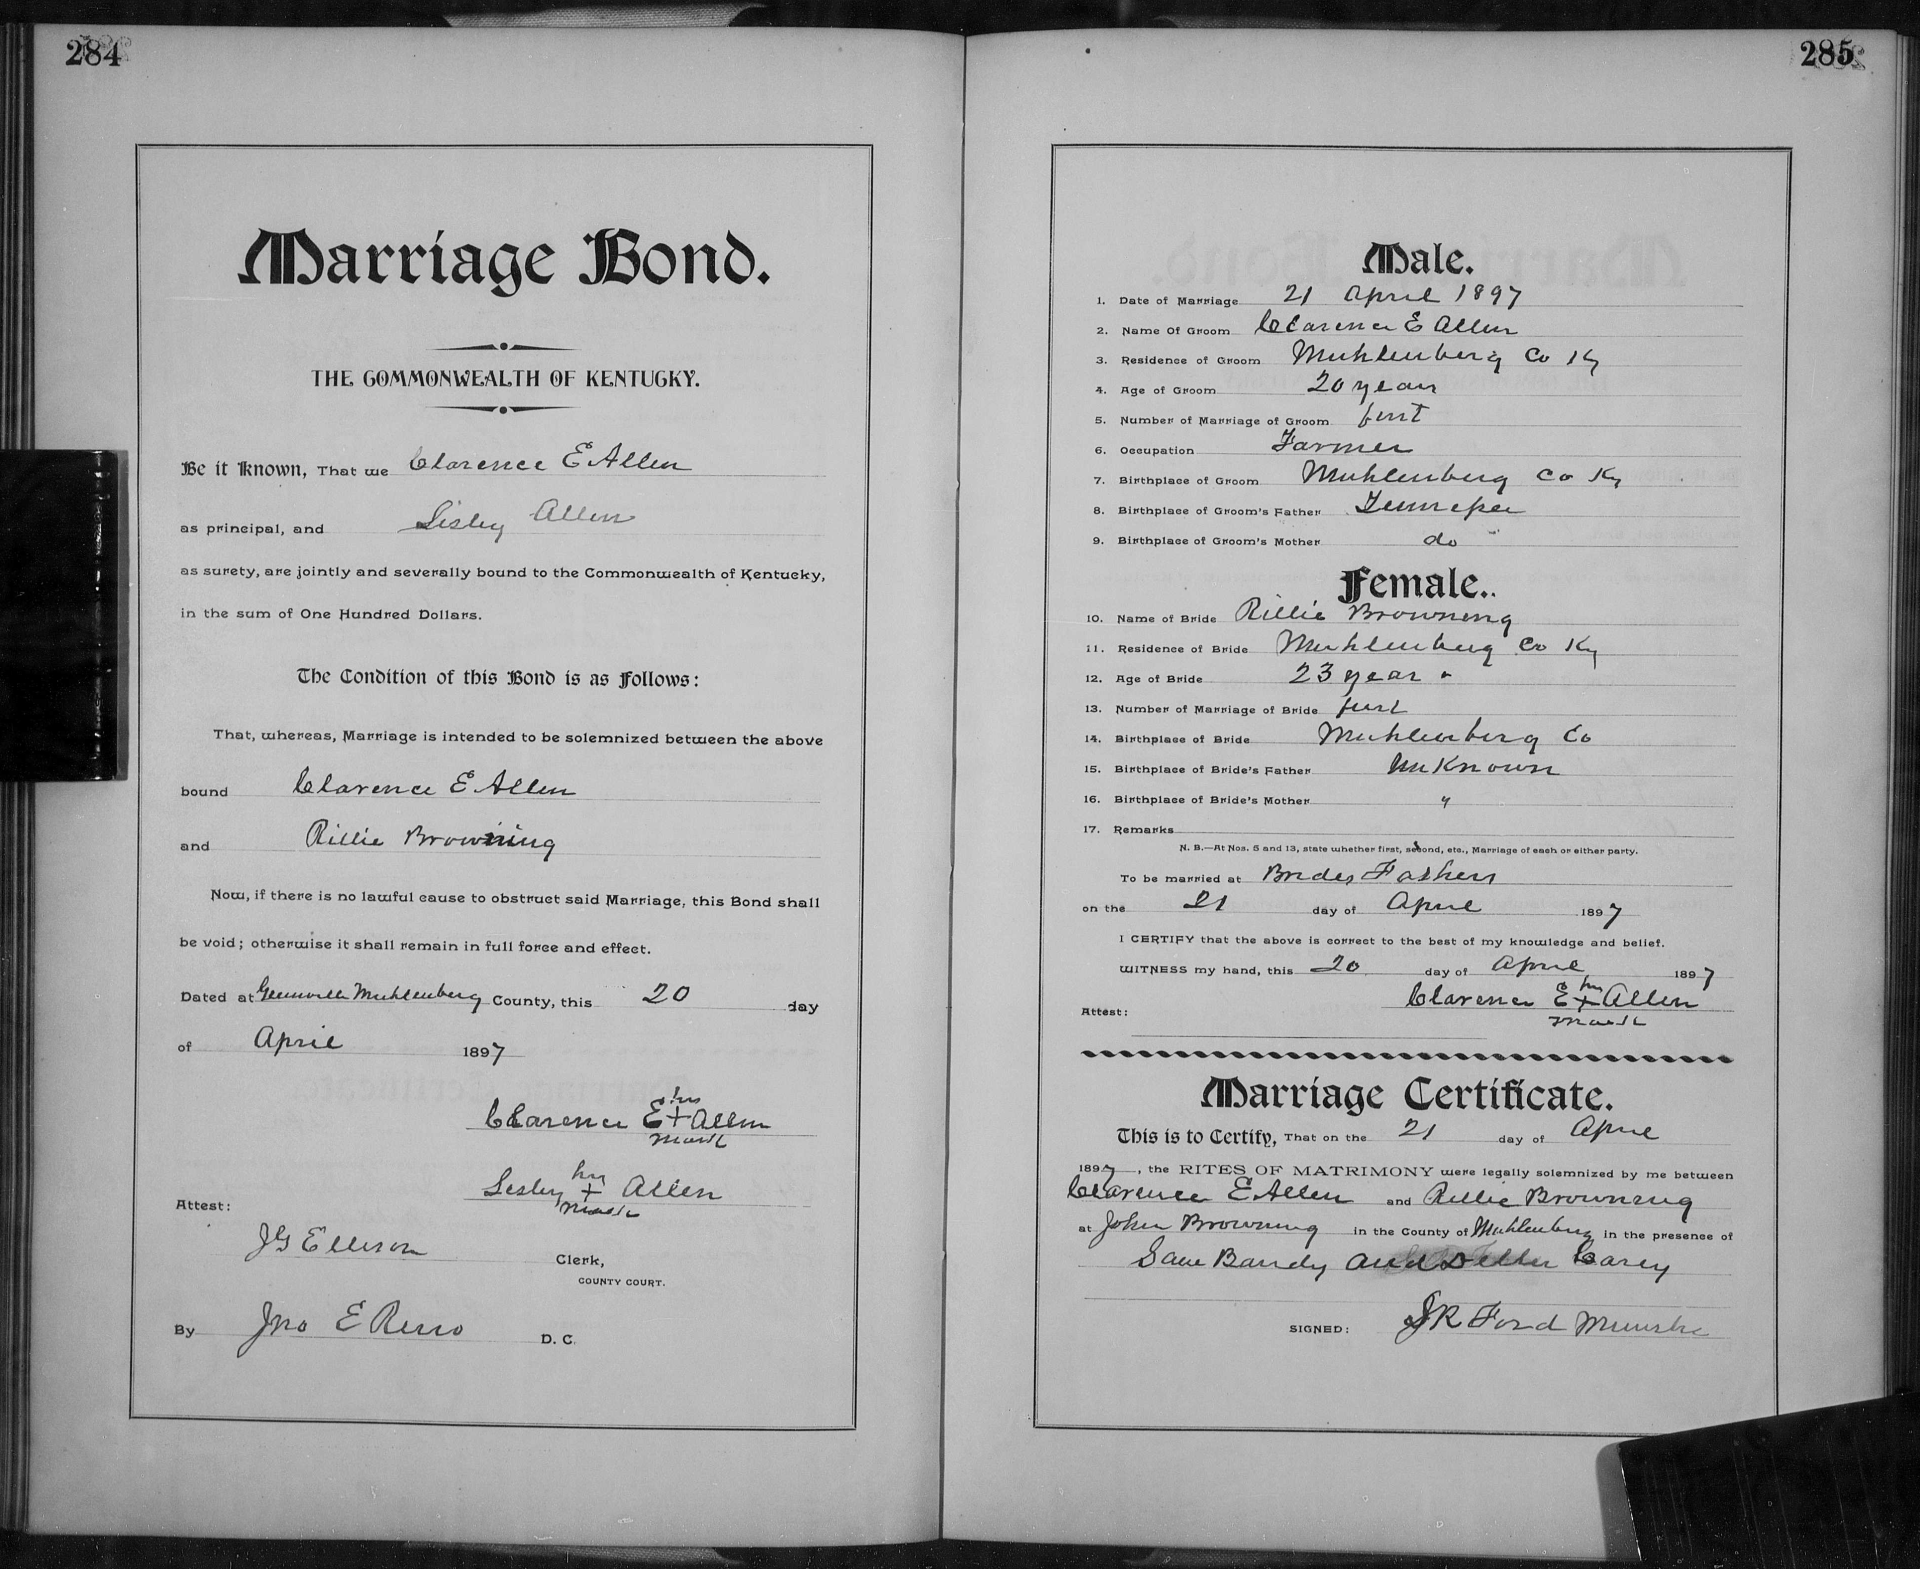 284
Marriage Bond.
THE COMMONWEALTH OF KENTUCKY.
Be it Known, That we Clarence E Allen
as principal, and Lisley Allen
as surety, are jointly and severally bound to the Commonwealth of Kentucky,
in the sum of One Hundred Dollars.
The Condition of this Bond is as Follows:
That, whereas, Marriage is intended to be solemnized between the above
bound Clarence E Allen
and Rillie Browning
Now, if there is no lawful cause to obstruct said Marriage, this Bond shall
be void; otherwise it shall remain in full force and effect.
Dated at Greenville Muhlenberg County, this 20 day
of April 1897
his
Clarence E + Allen
mark
his
Lesley + Allen
mark
Attest:
JG Ellison Clerk,
COUNTY COURT.
By Jno E Reno D. C.
285
Male.
1. Date of Marriage 21 April 1897
2. Name Of Groom Clarence E Allen
3. Residence of Groom Muhlenberg Co Ky
4. Age of Groom 20 years
5. Number of Marriage of Groom first
6. Occupation Farmer
7. Birthplace of Groom Muhlenberg Co Ky
8. Birthplace of Groom's Father Tennessee
9. Birthplace of Groom's Mother do
Female.
10. Name of Bride Rillie Browning
11. Residence of Bride Muhlenberg Co Ky
12. Age of Bride 23 years
13. Number of Marriage of Bride first
14. Birthplace of Bride Muhlenberg Co
15. Birthplace of Bride's Father UnKnown
16. Birthplace of Bride's Mother "
17. Remarks
N. B.—At Nos. 5 and 13, state whether first, second, etc., Marriage of each or either party.
To be married at Brides Fathers
on the 21 day of April 1897
I CERTIFY that the above is correct to the best of my knowledge and belief.
WITNESS my hand, this 20 day of April 1897
his
Clarence E + Allen
mark
Attest:
Marriage Certificate.
This is to Certify, That on the 21 day of April
1897, the RITES OF MATRIMONY were legally solemnized by me between
Clarence E Allen and Rillie Browning
at John Browning in the County of Muhlenberg in the presence of
Bandy and Carey
SIGNED: JR Ford Minister